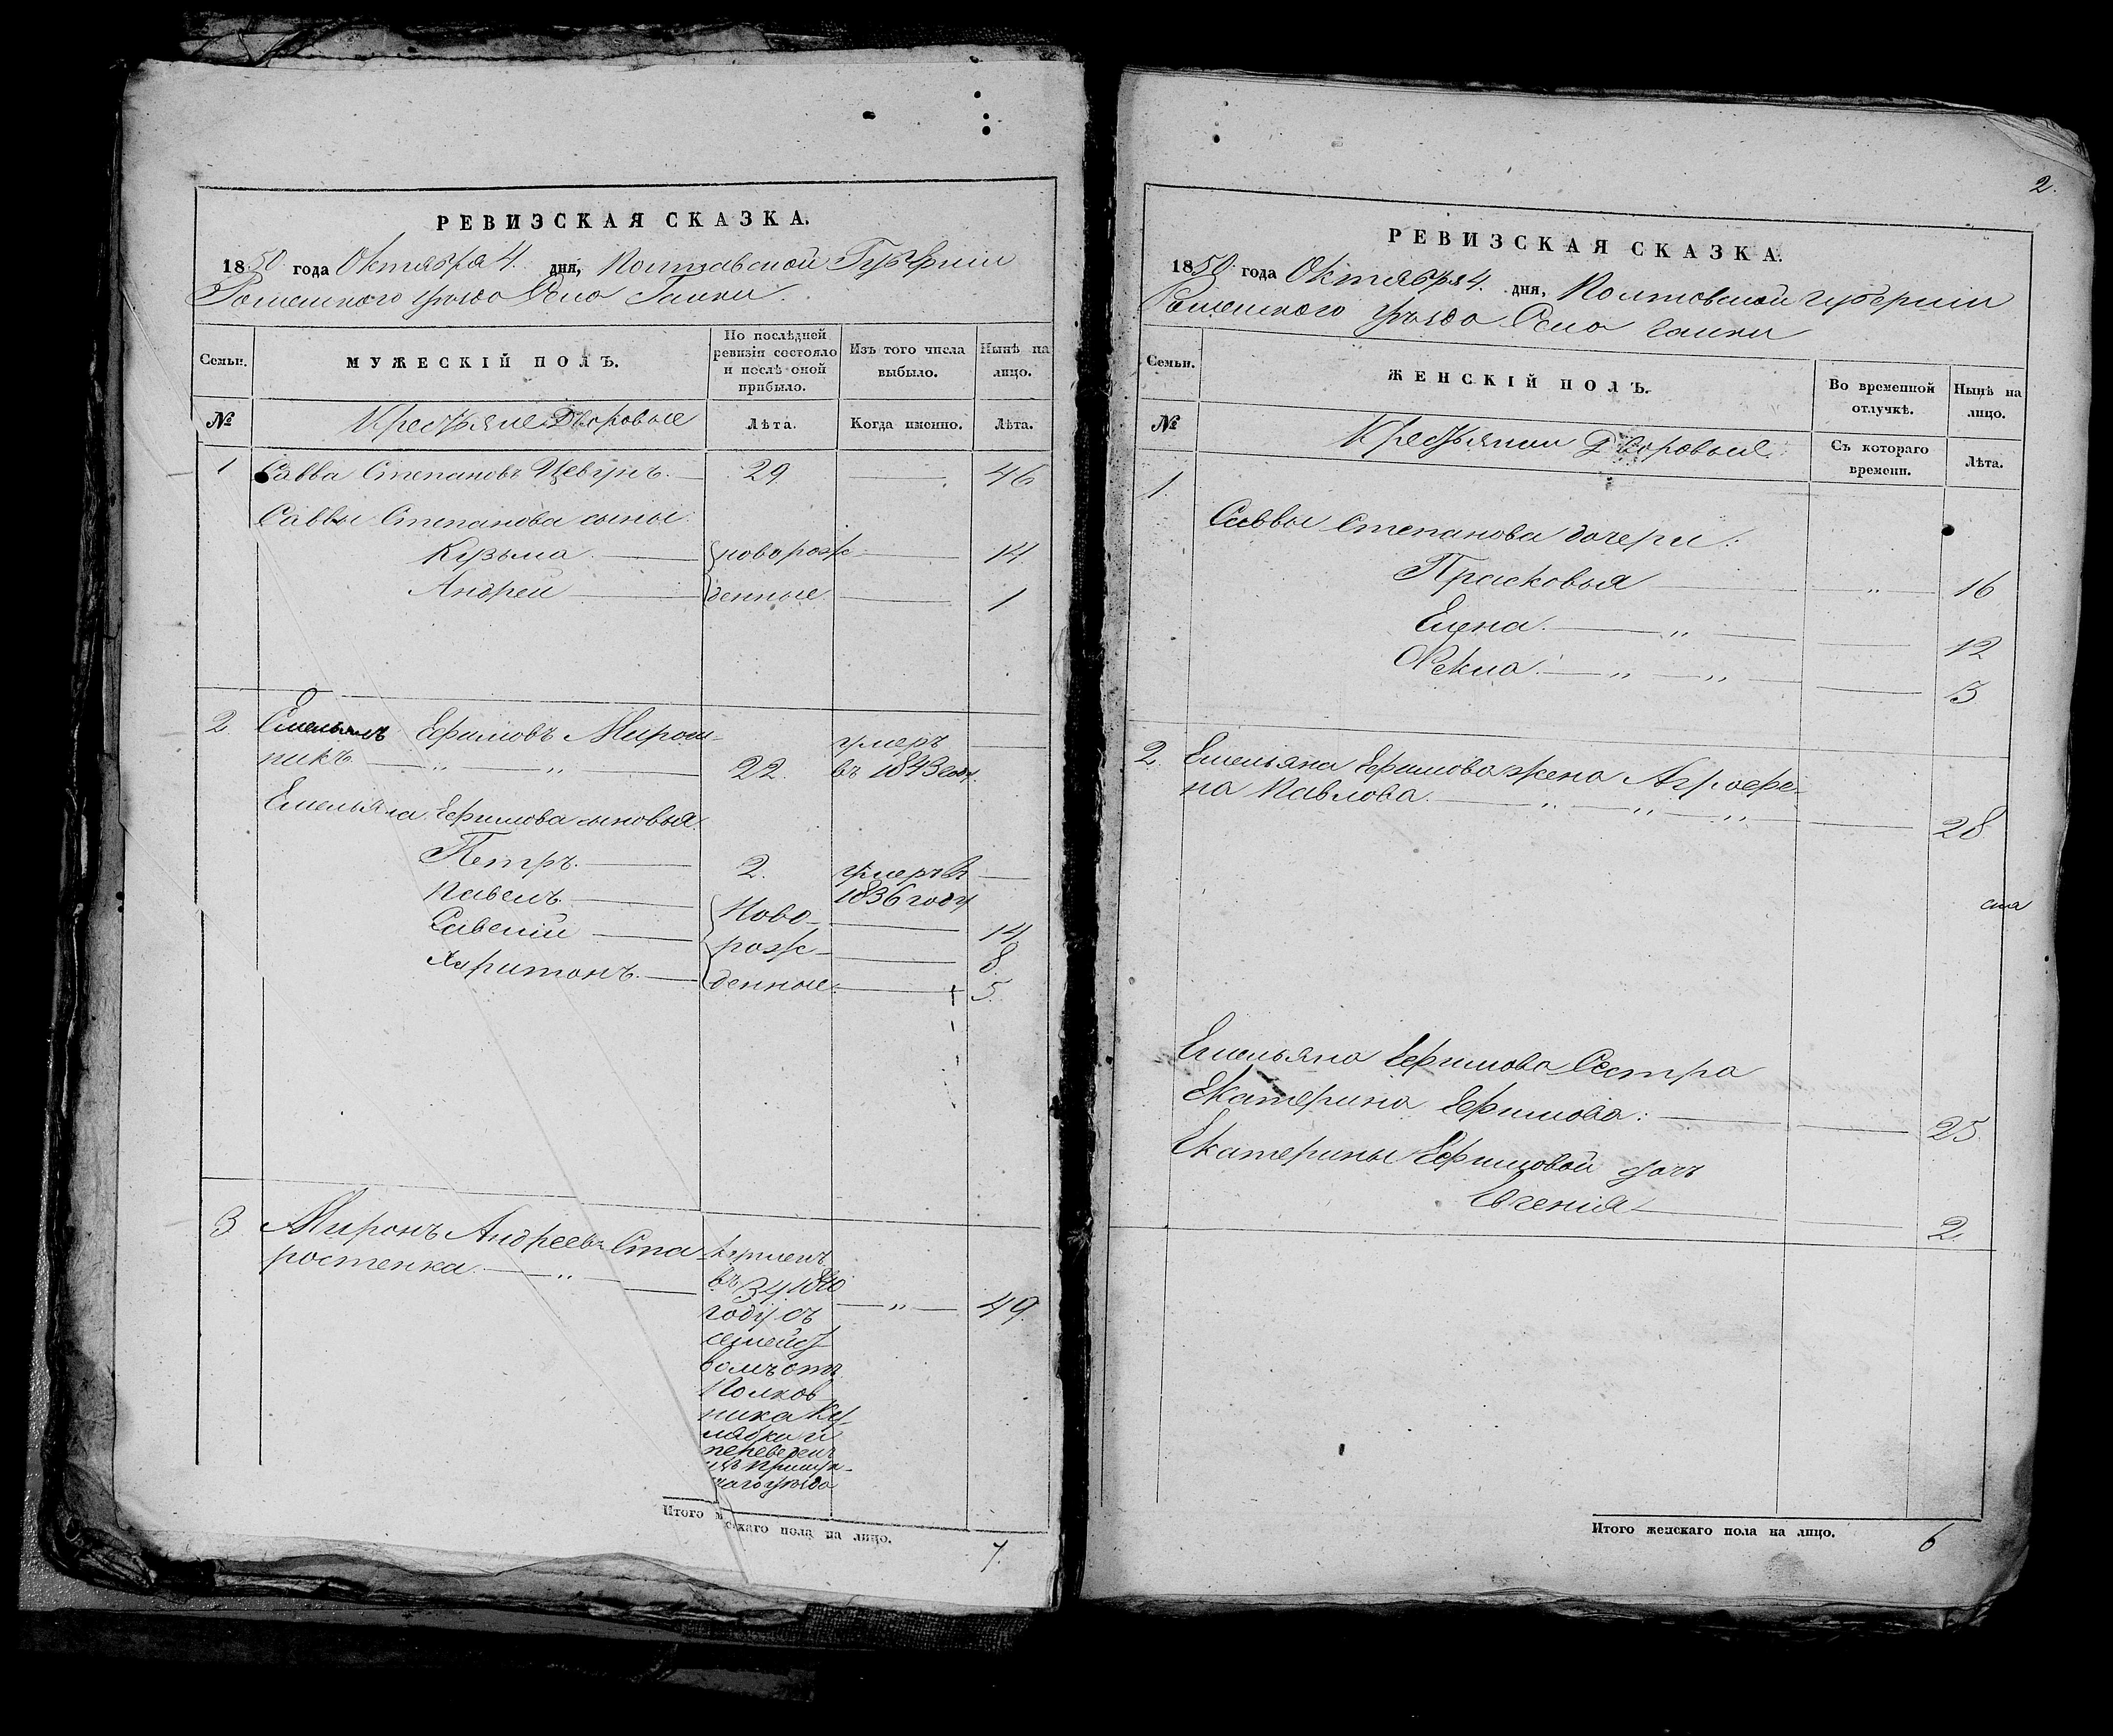 РЕВИЗСКАЯ СКАЗКА.
1850 года Октября 4. дня, Полтавской Губерніи
Роменского уѣзда Села Галки.
Семьи.
МУЖЕСКІЙ ПОЛЪ.
По послѣдней
ревизіи состояло
и послѣ оной
прибыло.
Изъ того числа
выбыло.
Нынѣ на
лицо.
№
Крестьяне Дворовые
Лѣта.
Когда именно.
Лѣта.
1 Савва Степановъ Цевунъ. 29 46
Саввы Степанова сыны
Кузьма новорож- 14
Андрей денные 1
2 Емельянъ Ефимовъ Мирош- умеръ
никъ 22. въ 1843 году
Емельяна Ефимова сыновья
Петръ. 2. умеръ въ
1836 году
Павелъ Ново- 14
Савелій рож- 8
Харитонъ. денные 5.
3 Миронъ Андреевъ Ста- купленъ
ростенка въ 34 1840
году съ 49.
семейст-
вомъ отъ
Полков-
ника Ку-
лябки и
переведенъ
изъ Прилук-
скаго уѣзда
Итого скаго пола на лицо. 7.
2.
РЕВИЗСКАЯ СКАЗКА.
1850. года Октября 4. дня, Полтовской губерніи
Роменского уѣзда Села Галки
Семьи.
ЖЕНСКІЙ ПОЛЪ.
Во временной
отлучкѣ.
Нынѣ на
лицо.
№
Крестьянки Дворовыя.
Съ котораго
времени.
Лѣта.
1.
Саввы Степанова дочери:
Прасковья " 16
Елена. " 12
Фекла. " " 3
2. Емельяна Ефимова жена Агрофе-
на Павлова. " " " 28
Емельяна Ефимова Сестра
Екатерина Ефимова: 25.
Екатерины Ефимовой дочь
Евгенія 2.
Итого женскаго пола на лицо. 6